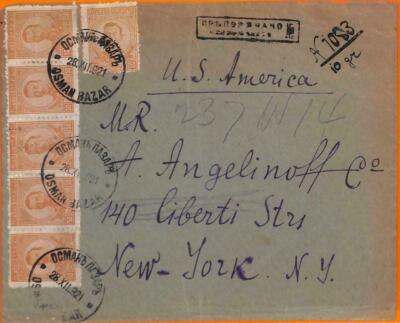 ОСМАНЪ ПАЗАРЪ
28.XII.921
OSMAN BAZAR
ПРѢПОРѪЧАНО
№ 1093
10 gr
U.S. America
237 W 14
M.R.
A. Angelinoff Co
140 Liberti Strs
New-York. N.Y.
ОСМАНЪ ПАЗАРЪ
28.XII.921
OSMAN BAZAR
ОСМАНЪ ПАЗАРЪ
28.XII.921